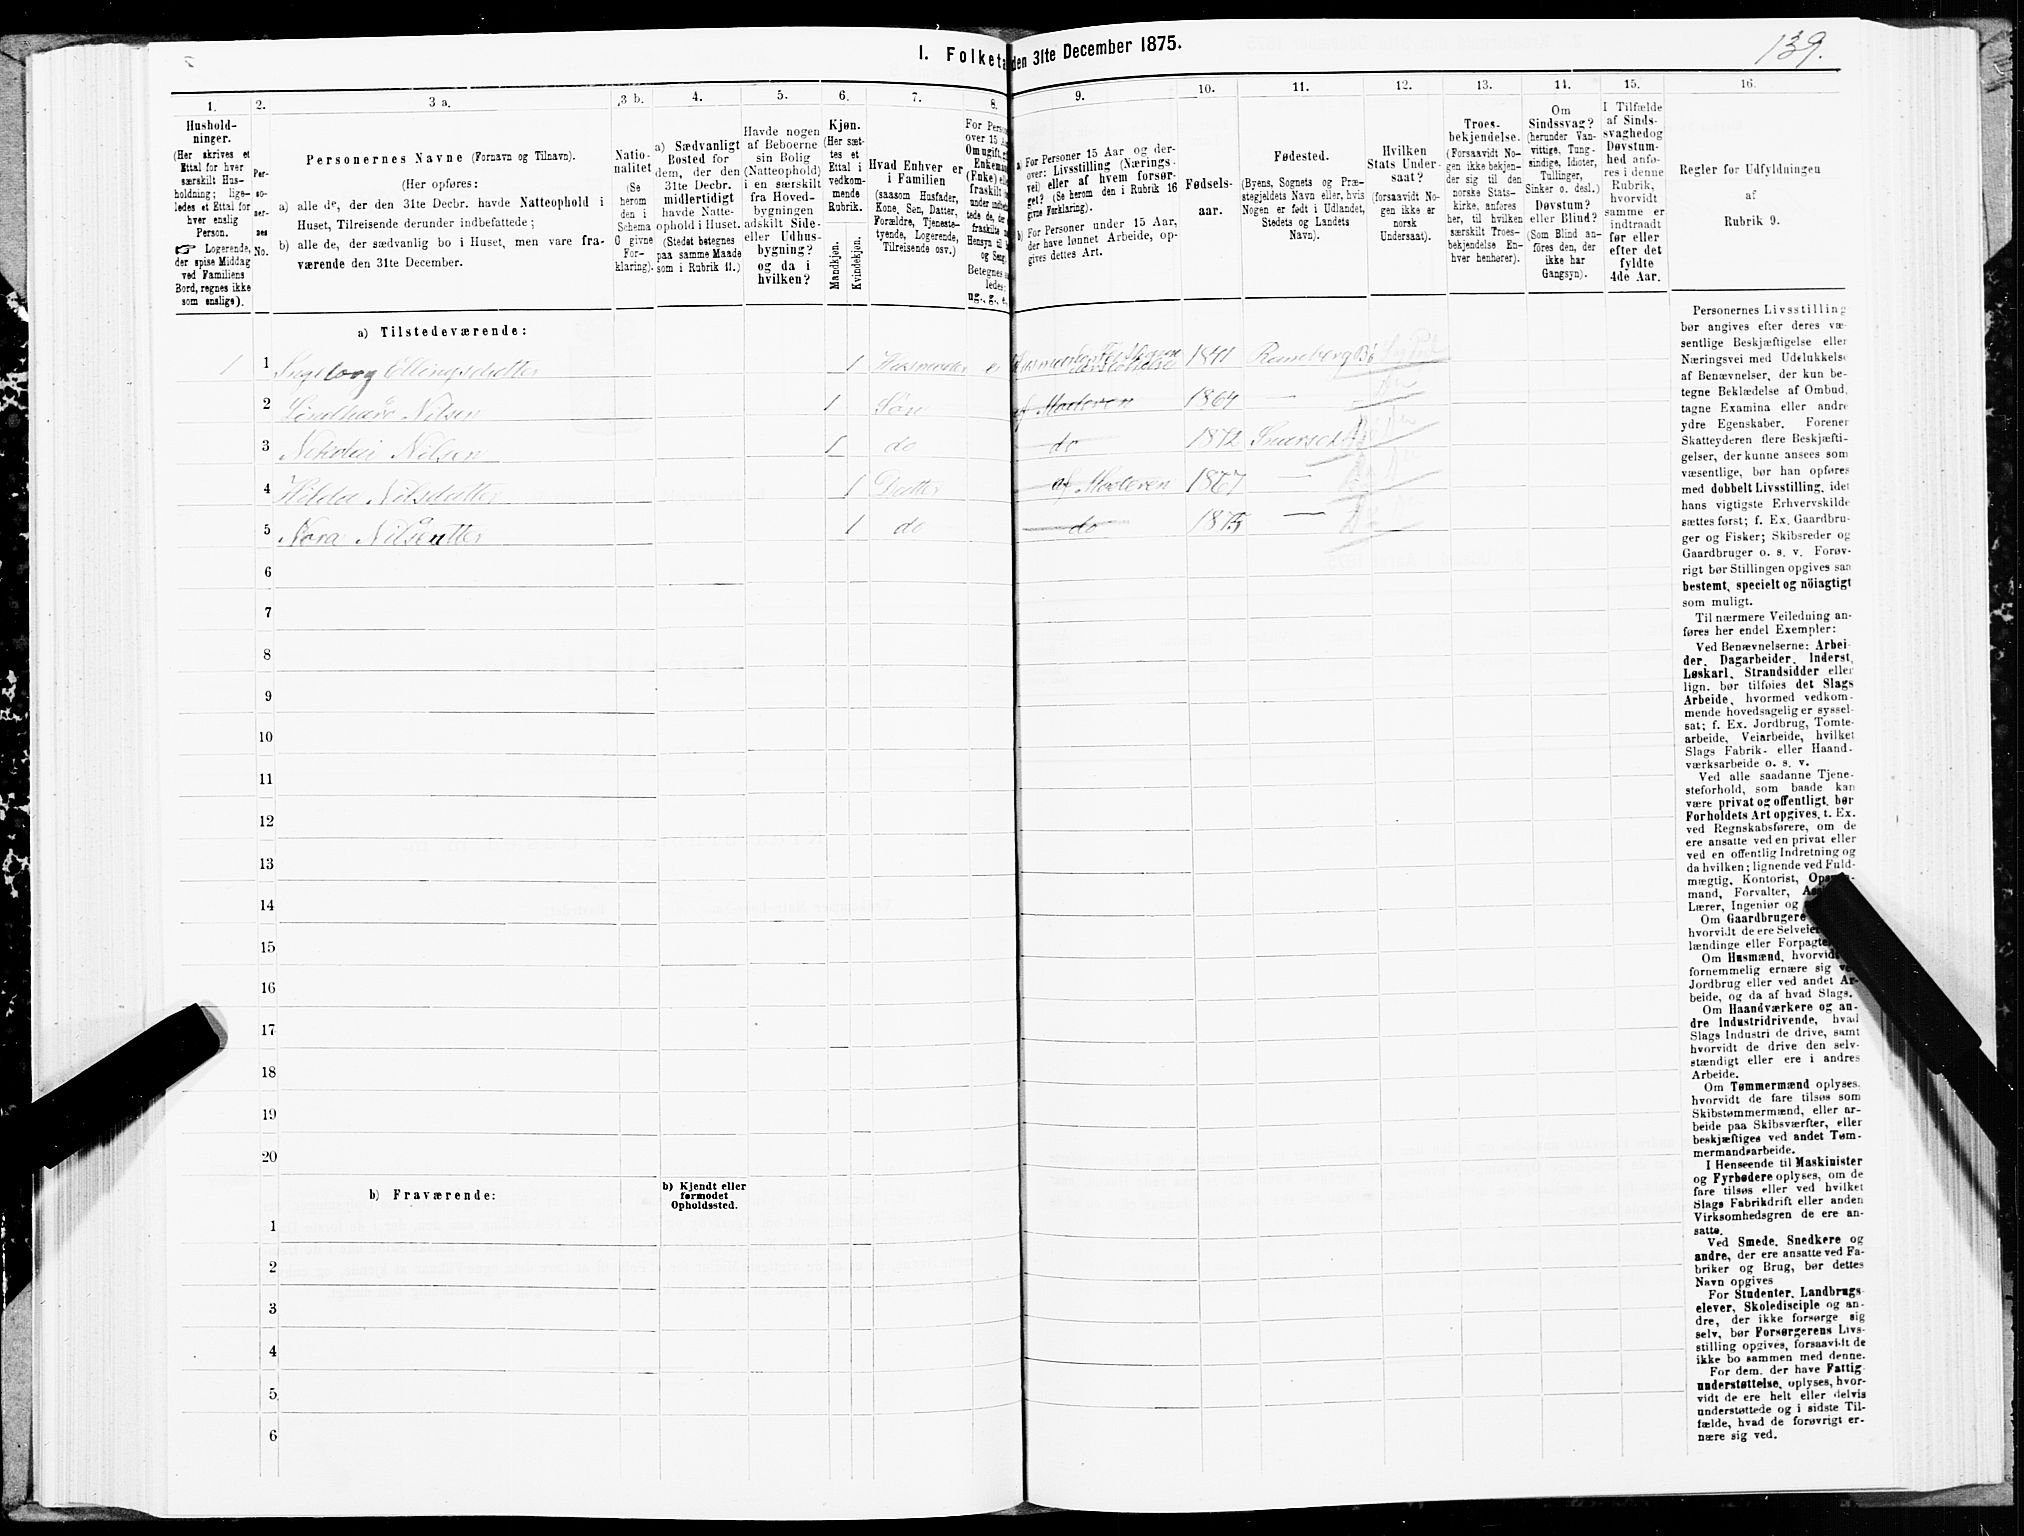 I. Folketæ den 31te December 1875.
139.
1.
Hushold-
ninger.
(Her skrives et
Ettal for hver
særskilt Hus-
holdning; lige-
ledes et Ettal for
hver enslig
Person.
☞ Logerende,
der spise Middag
ved Familiens
Bord, regnes ikke
som enslige).
2.
Per-
so-
ner-
nes
No.
3 a.
Personernes Navne (Fornavn og Tilnavn).
(Her opføres:
a) alle de, der den 31te Decbr. havde Natteophold i
Huset, Tilreisende derunder indbefattede;
b) alle de, der sædvanlig bo i Huset, men vare fra-
værende den 31te December.
3 b.
Natio-
nalitet
(Se
herom
den i
Schema
O givne
For-
klaring).
4.
a) Sædvanligt
Bosted for
dem, der den
31te Decbr.
midlertidigt
havde Natte-
ophold i Huset.
(Stedet betegnes
paa samme Maade
som i Rubrik 11.)
5.
Havde nogen
af Beboerne
sin Bolig
(Natteophold)
i en særskilt
fra Hoved-
bygningen
adskilt Side-
eller Udhus-
bygning?
og da i
hvilken?
6.
Kjøn.
(Her sæt-
tes et
Ettal i
vedkom-
mende
Rubrik.
Mandkjøn.
Kvindekjøn.
7.
Hvad Enhver er
i Familien
(saasom Husfader,
Kone, Søn, Datter,
Forældre, Tjeneste-
tyende, Logerende,
Tilreisende osv.)
8.
For Perso
over 15 A
Om ugift, g
Enkema
(Enke) el
fraskilt
Hensyn til
og Seng
Betegnes
ledes:
ug., g., e.
9.
a) For Personer 15 Aar og der-
over: Livsstilling (Nærings-
vei) eller af hvem forsør-
get? (Se herom den i Rubrik 16
givne Forklaring).
b) For Personer under 15 Aar,
der have lønnet Arbeide, op-
gives dettes Art.
10.
Fødsels-
aar.
11.
Fødested.
(Byens, Sognets og Præ-
stegjeldets Navn eller, hvis
Nogen er født i Udlandet,
Stedets og Landets
Navn).
12.
Hvilken
Stats Under-
saat?
(forsaavidt No-
gen ikke er
norsk
Undersaat).
13.
Troes-
bekjendelse.
(Forsaavidt No-
gen ikke bekjen-
der sig til den
norske Stats-
kirke, anføres
her, til hvilken
særskilt Troes-
bekjendelse En-
hver henhører).
14.
Om
Sindssvag?
(herunder Van-
vittige, Tung-
sindige, Idioter,
Tullinger,
Sinker o. desl.)
Døvstum?
eller Blind?
(Som Blind an-
føres den, der
ikke har
Gangsyn).
15.
I Tilfælde
af Sinds-
svaghed og
Døvstum-
hed anfø-
res i denne
Rubrik,
hvorvidt
samme er
indtraadt
før eller
efter det
fyldte
4de Aar.
16.
Regler for Udfyldningen
af
Rubrik 9.
a) Tilstedeværende:
1 1 Ingeborg Ellingsdatter 1 Husmoder e 1841 Ramberg Bø
2 Nilsen 1 Søn af Moderen 1864 —
3 Nikolai Nilsen 1 do do 1872
4 Hilda Nilsdatter 1 Datter af Moderen 1867 —
5 Nora 1 do do 1875 —
6
7
8
9
10
11
12
13
14
15
16
17
18
19
20
b) Fraværende:
b) Kjendt eller
formodet
Opholdssted.
1
2
3
4
5
6
Personernes Livsstilling
bør angives efter deres væ-
sentlige Beskjæftigelse eller
Næringsvei med Udelukkelse
af Benævnelser, der kun be-
tegne Beklædelse af Ombud,
tagne Examina eller andre
ydre Egenskaber. Forener
Skatteyderen flere Beskjæfti-
gelser, der kunne ansees som
væsentlige, bør han opføres
med dobbelt Livsstilling, idet
hans vigtigste Erhvervskilde
sættes først; f. Ex. Gaardbru-
ger og Fisker; Skibsreder og
Gaardbruger o. s. v. Forøv-
rigt bør Stillingen opgives saa
bestemt, specielt og nöiagtigt
som muligt.
Til nærmere Veiledning an-
føres her endel Exempler:
Ved Benævnelserne: Arbei-
der, Dagarbeider, Inderst,
Løskarl, Strandsidder eller
lign. bør tilføies det Slags
Arbeide, hvormed vedkom-
mende hovedsagelig er syssel-
sat; f. Ex. Jordbrug, Tomte-
arbeide, Veiarbeide, hvilket
Slags Fabrik- eller Haand-
værksarbeide o. s. v.
Ved alle saadanne Tjene-
steforhold, som baade kan
være privat og offentligt, bør
Forholdets Art opgives, t. Ex.
ved Regnskabsførere, om de
ere ansatte ved en privat eller
ved en offentlig Indretning og
da hvilken; lignende ved Fuld-
mægtig, Kontorist,
mand, Forvalter,
Lærer, Ingeniør og
Om Gaardbrugere
hvorvidt de ere Selveier
lændinge eller Forpagte
Om Husmænd, hvorvidt
fornemmelig ernære sig ve
Jordbrug eller ved andet Ar-
beide, og da af hvad Slags.
Om Haandværkere og an-
dre Industridrivende, hvad
Slags Industri de drive, samt
hvorvidt de drive den selv-
stændigt eller ere i andres
Arbeide.
Om Tømmermænd oplyses,
hvorvidt de fare tilsøs som
Skibstømmermænd, eller ar-
beide paa Skibsværfter, eller
beskjæftiges ved andet Tøm-
mermandsarbeide.
I Henseende til Maskinister
og Fyrbødere oplyses, om de
fare tilsøs eller ved hvilket
Slags Fabrikdrift eller anden
Virksomhedsgren de ere an-
satte.
Ved Smede, Snedkere og
andre, der ere ansatte ved Fa-
briker og Brug, bør dettes
Navn opgives
For Studenter, Landbrugs-
elever, Skoledisciple og an-
dre, der ikke forsørge sig
selv, bør Forsørgerens Livs-
stilling opgives, forsaavidt de
ikke bo sammen med denne.
For dem, der have Fattig-
understøttelse, oplyses, hvor-
vidt de ere helt eller delvis
understøttede og i sidste Til-
fælde, hvad de forøvrigt er-
nære sig ved.